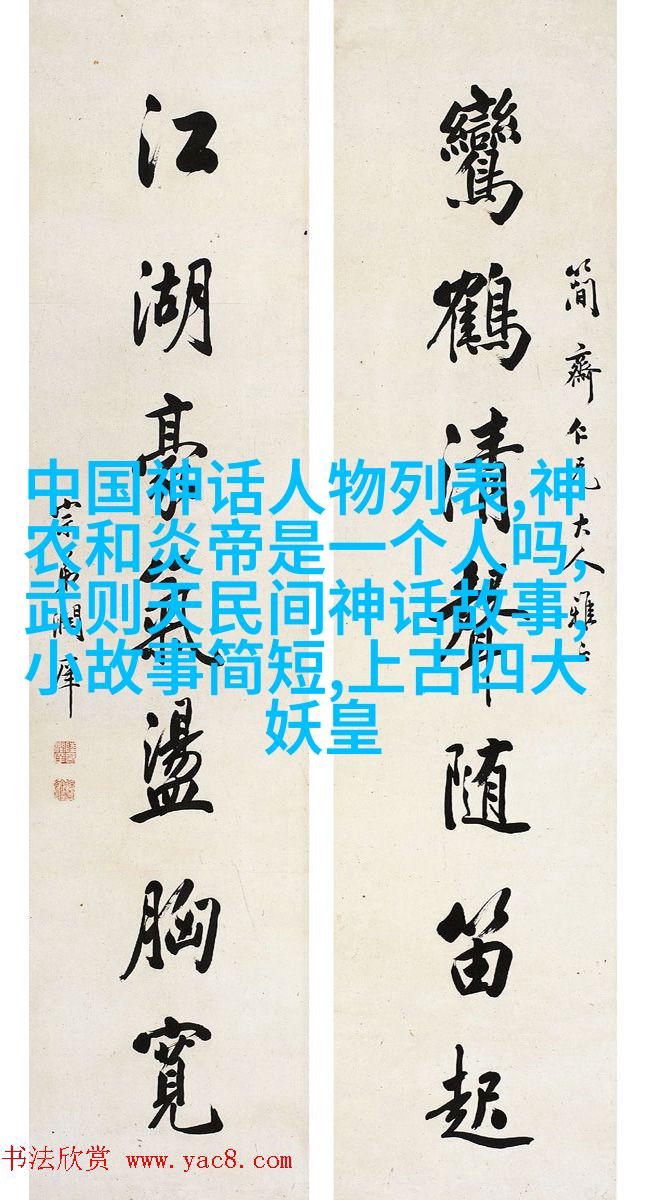 簡齋仁兄大人雅正
鸞鶴清聲随笛起
江湖豪氣盪胸寬
宗弟潤庠
中国神话人物列表,神
农和炎帝是一个人吗,
武则天民间神话故事,
小故事简短,上古四大
妖皇
书法欣赏 www.yac8.com